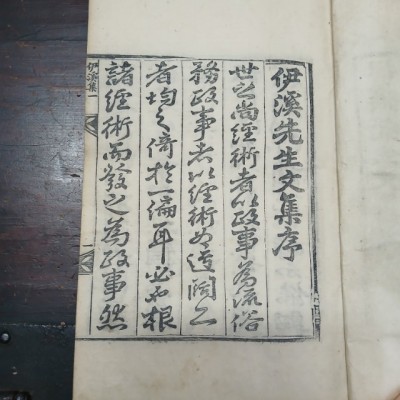 伊溪先生文集序
世之尚經術者以政事爲流俗
務政事者以經術爲迂闊二
者均之倚於一偏耳必根
諸經術而發之爲政事然
伊溪集一
一